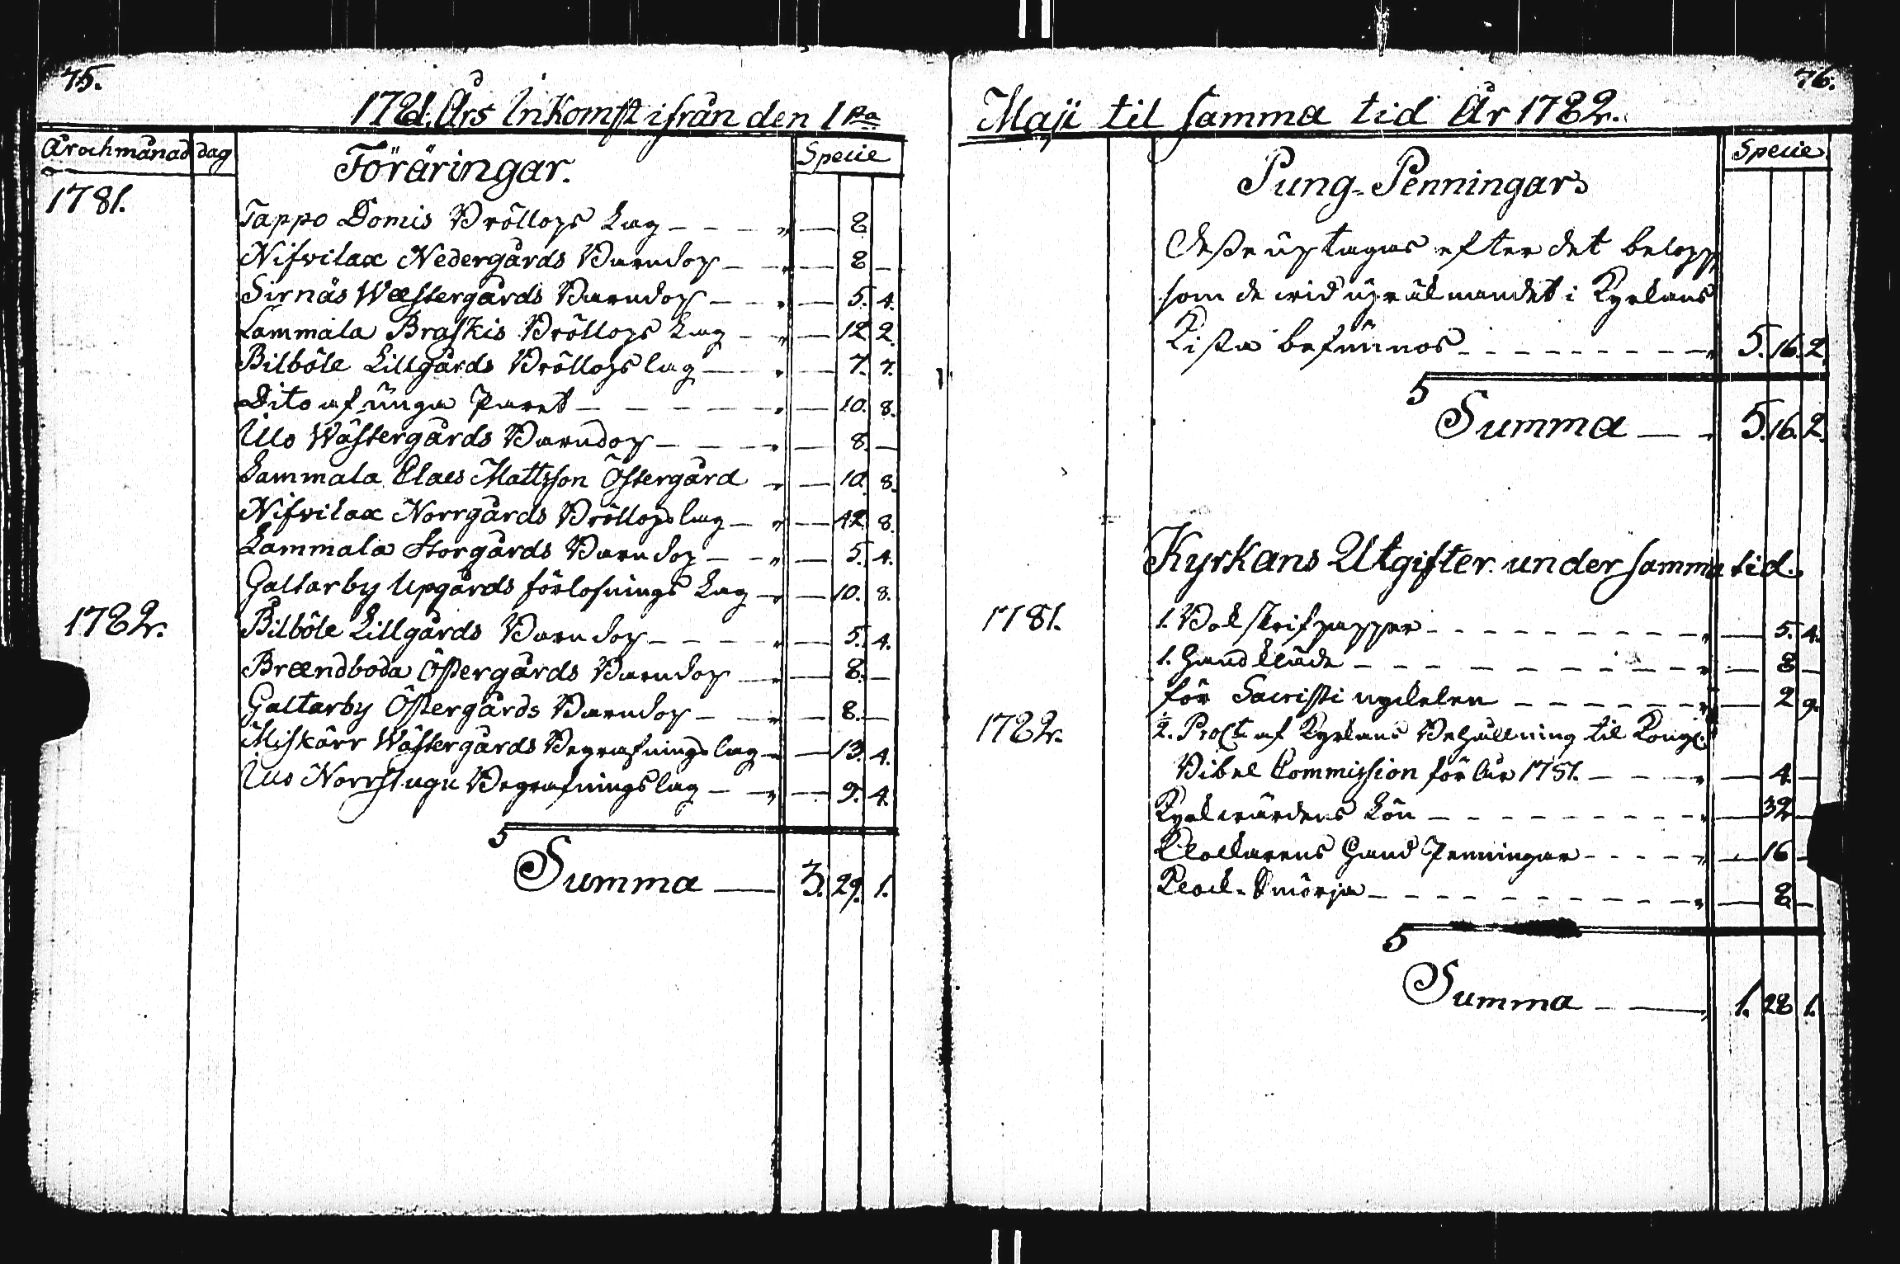 75.
1781. Års Inkomst ifrån den 1sta
År och månad dag
Föräringar.
Specie
1781.
Tappo Domis Bröllops Lag 8
Nifvilax Nedergårds Barndop 8
Sirnäs Wästergårds Barndop 5. 4.
Lammala Braskis Bröllops Lag 12 2.
Bilböle Lillgårds Bröllopslag 7. 7.
Dito af unga Paret 10. 8.
Ulo Wästergårds Barndop 8
Lammala Claes Mattsson Östergård 10. 8.
Nifvilax Norrgårds Bröllopslag 12. 8.
Lammala Storgårds Barndop 5. 4.
Galtarby Upgårds förlofnings Lag 10. 8.
1782.
Bilböle Lillgårds Barndop 5. 4.
Brændboda Östergårds Barndop 8.
Galtarby Östergårds Barndop 8.
Miskärr Wästergårds Begrafningslag 13. 4.
Ulo Norrstugu Begrafningslag 9. 4.
Summa 3. 29. 1.
76.
Maji til samma tid År 1782.
Specie
Pung-Penningar
Desse uptagas efter det belopp
som de wid upräknandet i Kyrkans
Kista befunnos 5. 16. 2
Summa 5. 16. 2.
Kyrkans Utgifter under samma tid.
1781.
1. Bok skrifpapper 5. 4.
1. Handkläde 8
för Sacristi nyckelen 2 9.
1782.
2. Proct. af Kyrkans Behållning til Kongl.
Bibel Commission för År 1781. 4.
Kyrkwärdens Lön 32
Klockarens Hand Penningar 16
Klock-Smörja 8
Summa 1. 28 1.